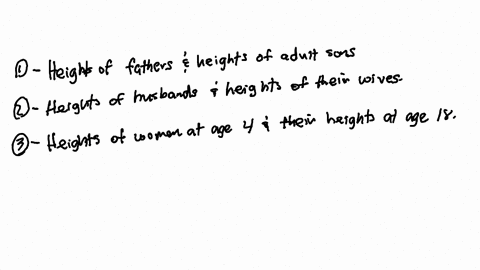 ① - Heights of fathers & heights of adult sons
② - Heights of husbands & heights of their wives.
③ - Heights of women at age 4 & their heights at age 18.